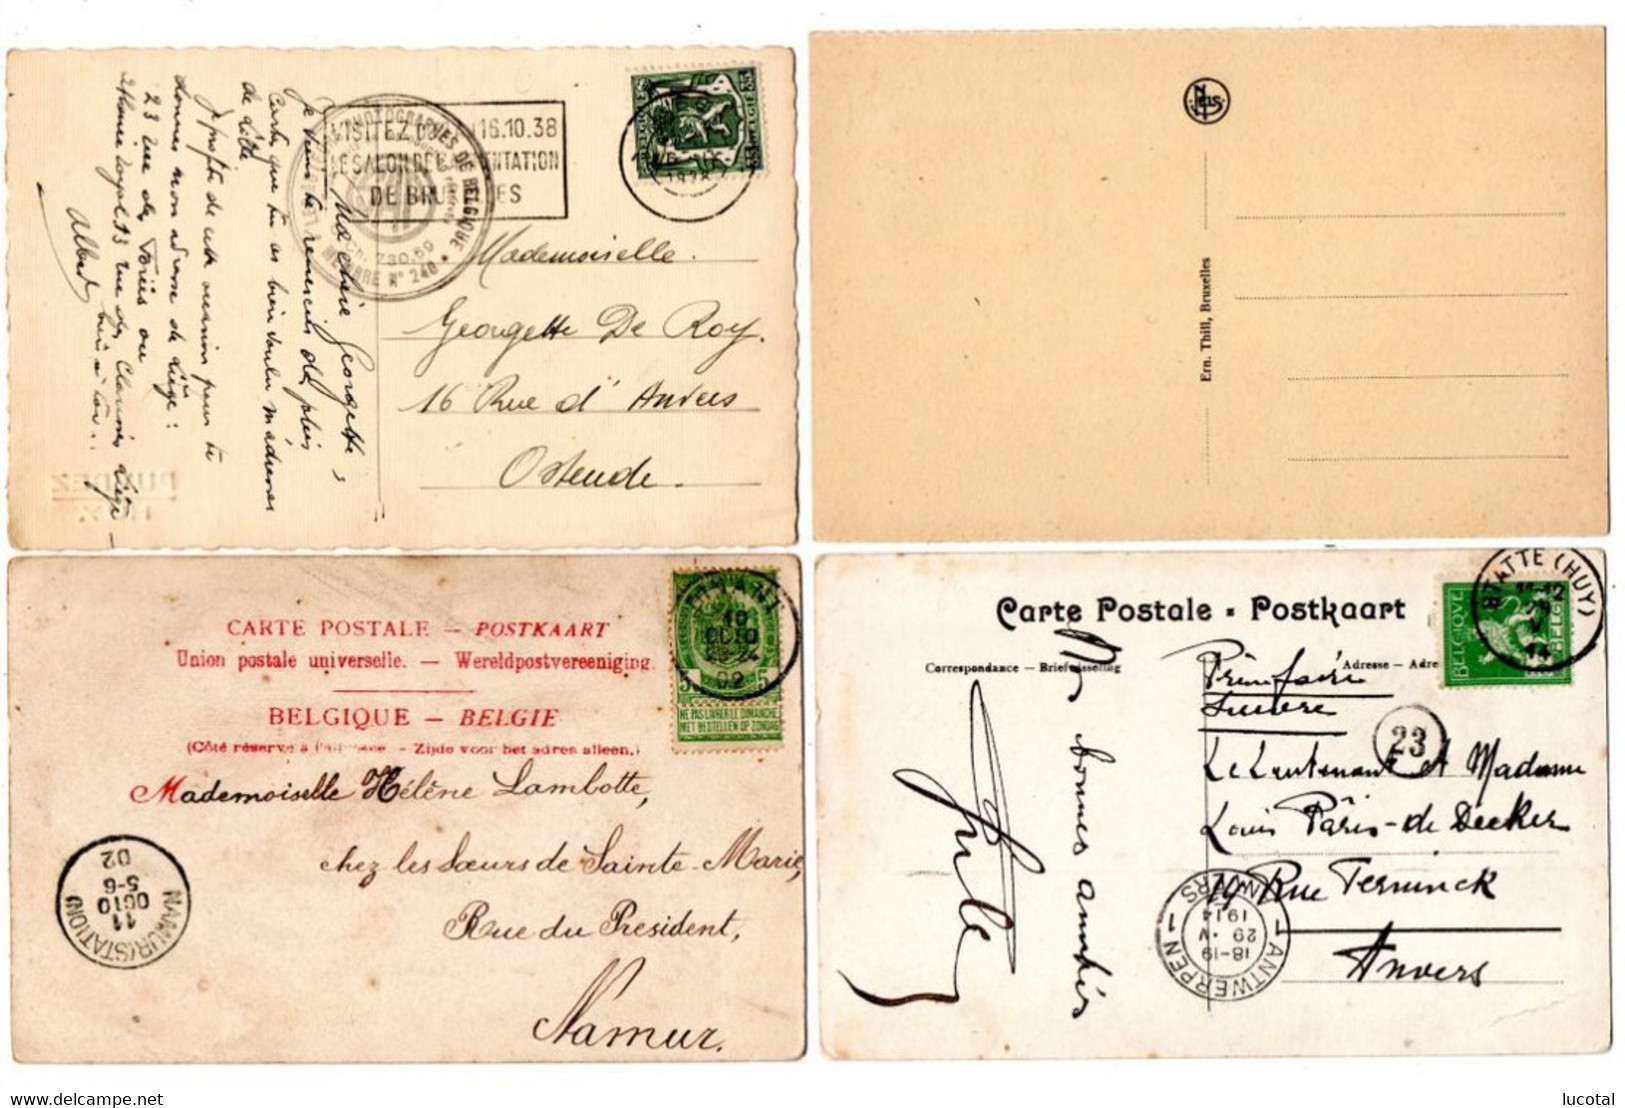 Ma chère Georgette,
Je viens te remercier de
carte que tu as bien voulu m'adresser
de
Je profite de cette occasion pour te
donner mon adresse de Liège :
23 rue des Vosges ou
Athénée Royal 13 rue des Clarisses Liège
bien à toi...
Albert
PHOTOGRAPHES DE BELGIQUE
MEMBRE N° 240
VISITEZ DU 16.10.38
LE SALON DE L'ALIMENTATION
DE BRUXELLES
BELGIQUE BELGIE
35
Mademoiselle.
Georgette De Roy.
16 Rue d'Anvers
Ostende.
NELS
Ern. Thill, Bruxelles
CARTE POSTALE – POSTKAART
Union postale universelle. — Wereldpostvereeniging.
BELGIQUE – BELGIE
(Côté réservé à l'adresse. - Zijde voor het adres alleen.)
DINANT
10
OCTO
02
5 5
NE PAS LIVRER LE DIMANCHE
NIET BESTELLEN OP ZONDAG
Mademoiselle Hélène Lambotte,
chez les Sœurs de Sainte-Marie,
Rue du President,
Namur.
NAMUR (STATION)
11
OCTO
5-6
02
Carte Postale - Postkaart
Correspondance — Briefwisseling
Adresse — Adre
STATTE (HUY)
11-12
29
V
14
BELGIQUE
BELGIË
23
Le Lieutenant et Madame
Louis Pâris-de Decker
19 Rue Terninck
Anvers
ANTWERPEN
1 ANVERS 1
18-19
29 · V
1914
bonnes amitiés
lucotal